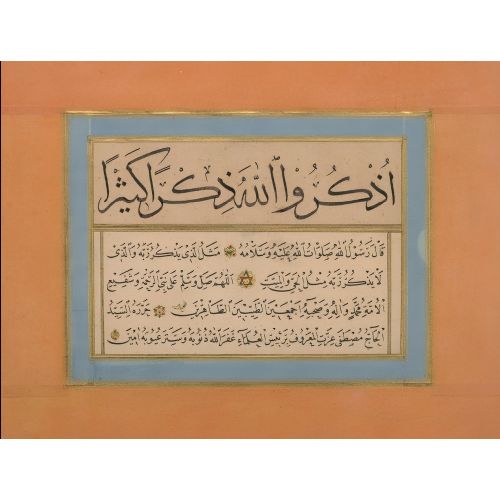 اُذْكُرُوا اللّٰهَ ذِكْرًا كَثِيرًا
قَالَ رَسُولُ اللّٰهِ صَلَوَاتُ اللّٰهِ عَلَيْهِ وَسَلَامُهُ مَثَلُ الَّذِي يَذْكُرُ رَبَّهُ وَالَّذِي
لَا يَذْكُرُ رَبَّهُ مِثْلُ الْحَيِّ وَالْمَيِّتِ اَللّٰهُمَّ صَلِّ وَسَلِّمْ عَلَى نَبِيِّ الرَّحْمَةِ وَشَفِيعِ
الْاُمَّةِ مُحَمَّدٍ وَاٰلِهِ وَصَحْبِهِ اَجْمَعِينَ الطَّيِّبِينَ الطَّاهِرِينَ حَرَّرَهُ السَّيِّدُ
الْحَاجُّ مُصْطَفَى عِزَّتْ الْمَعْرُوفُ بِرَئِيسِ الْعُلَمَاءِ غَفَرَ اللّٰهُ ذُنُوبَهُ وَسَتَرَ عُيُوبَهُ اٰمِينَ